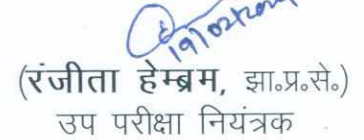 19/02/20
(रंजीता हेम्ब्रम, झा॰प्र॰से॰)
उप परीक्षा नियंत्रक